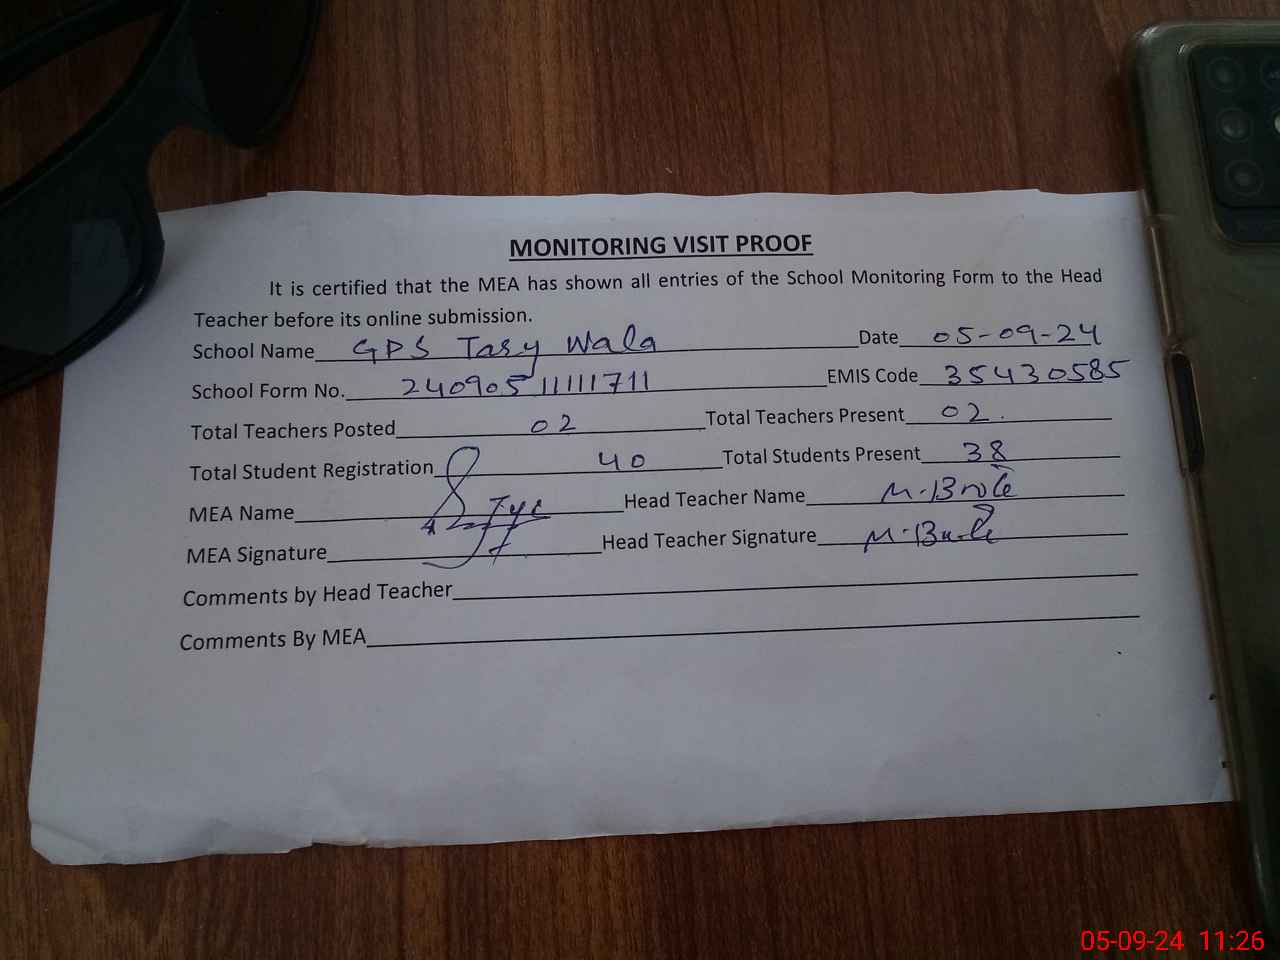 MONITORING VISIT PROOF
It is certified that the MEA has shown all entries of the School Monitoring Form to the Head
Teacher before its online submission.
School Name GPS Tasy Wala Date 05-09-24
School Form No. 24090511111711 EMIS Code 35430585
Total Teachers Posted 02 Total Teachers Present 02.
Total Student Registration 40 Total Students Present 38
MEA Name Head Teacher Name
MEA Signature Head Teacher Signature
Comments by Head Teacher
Comments By MEA
05-09-24 11:26